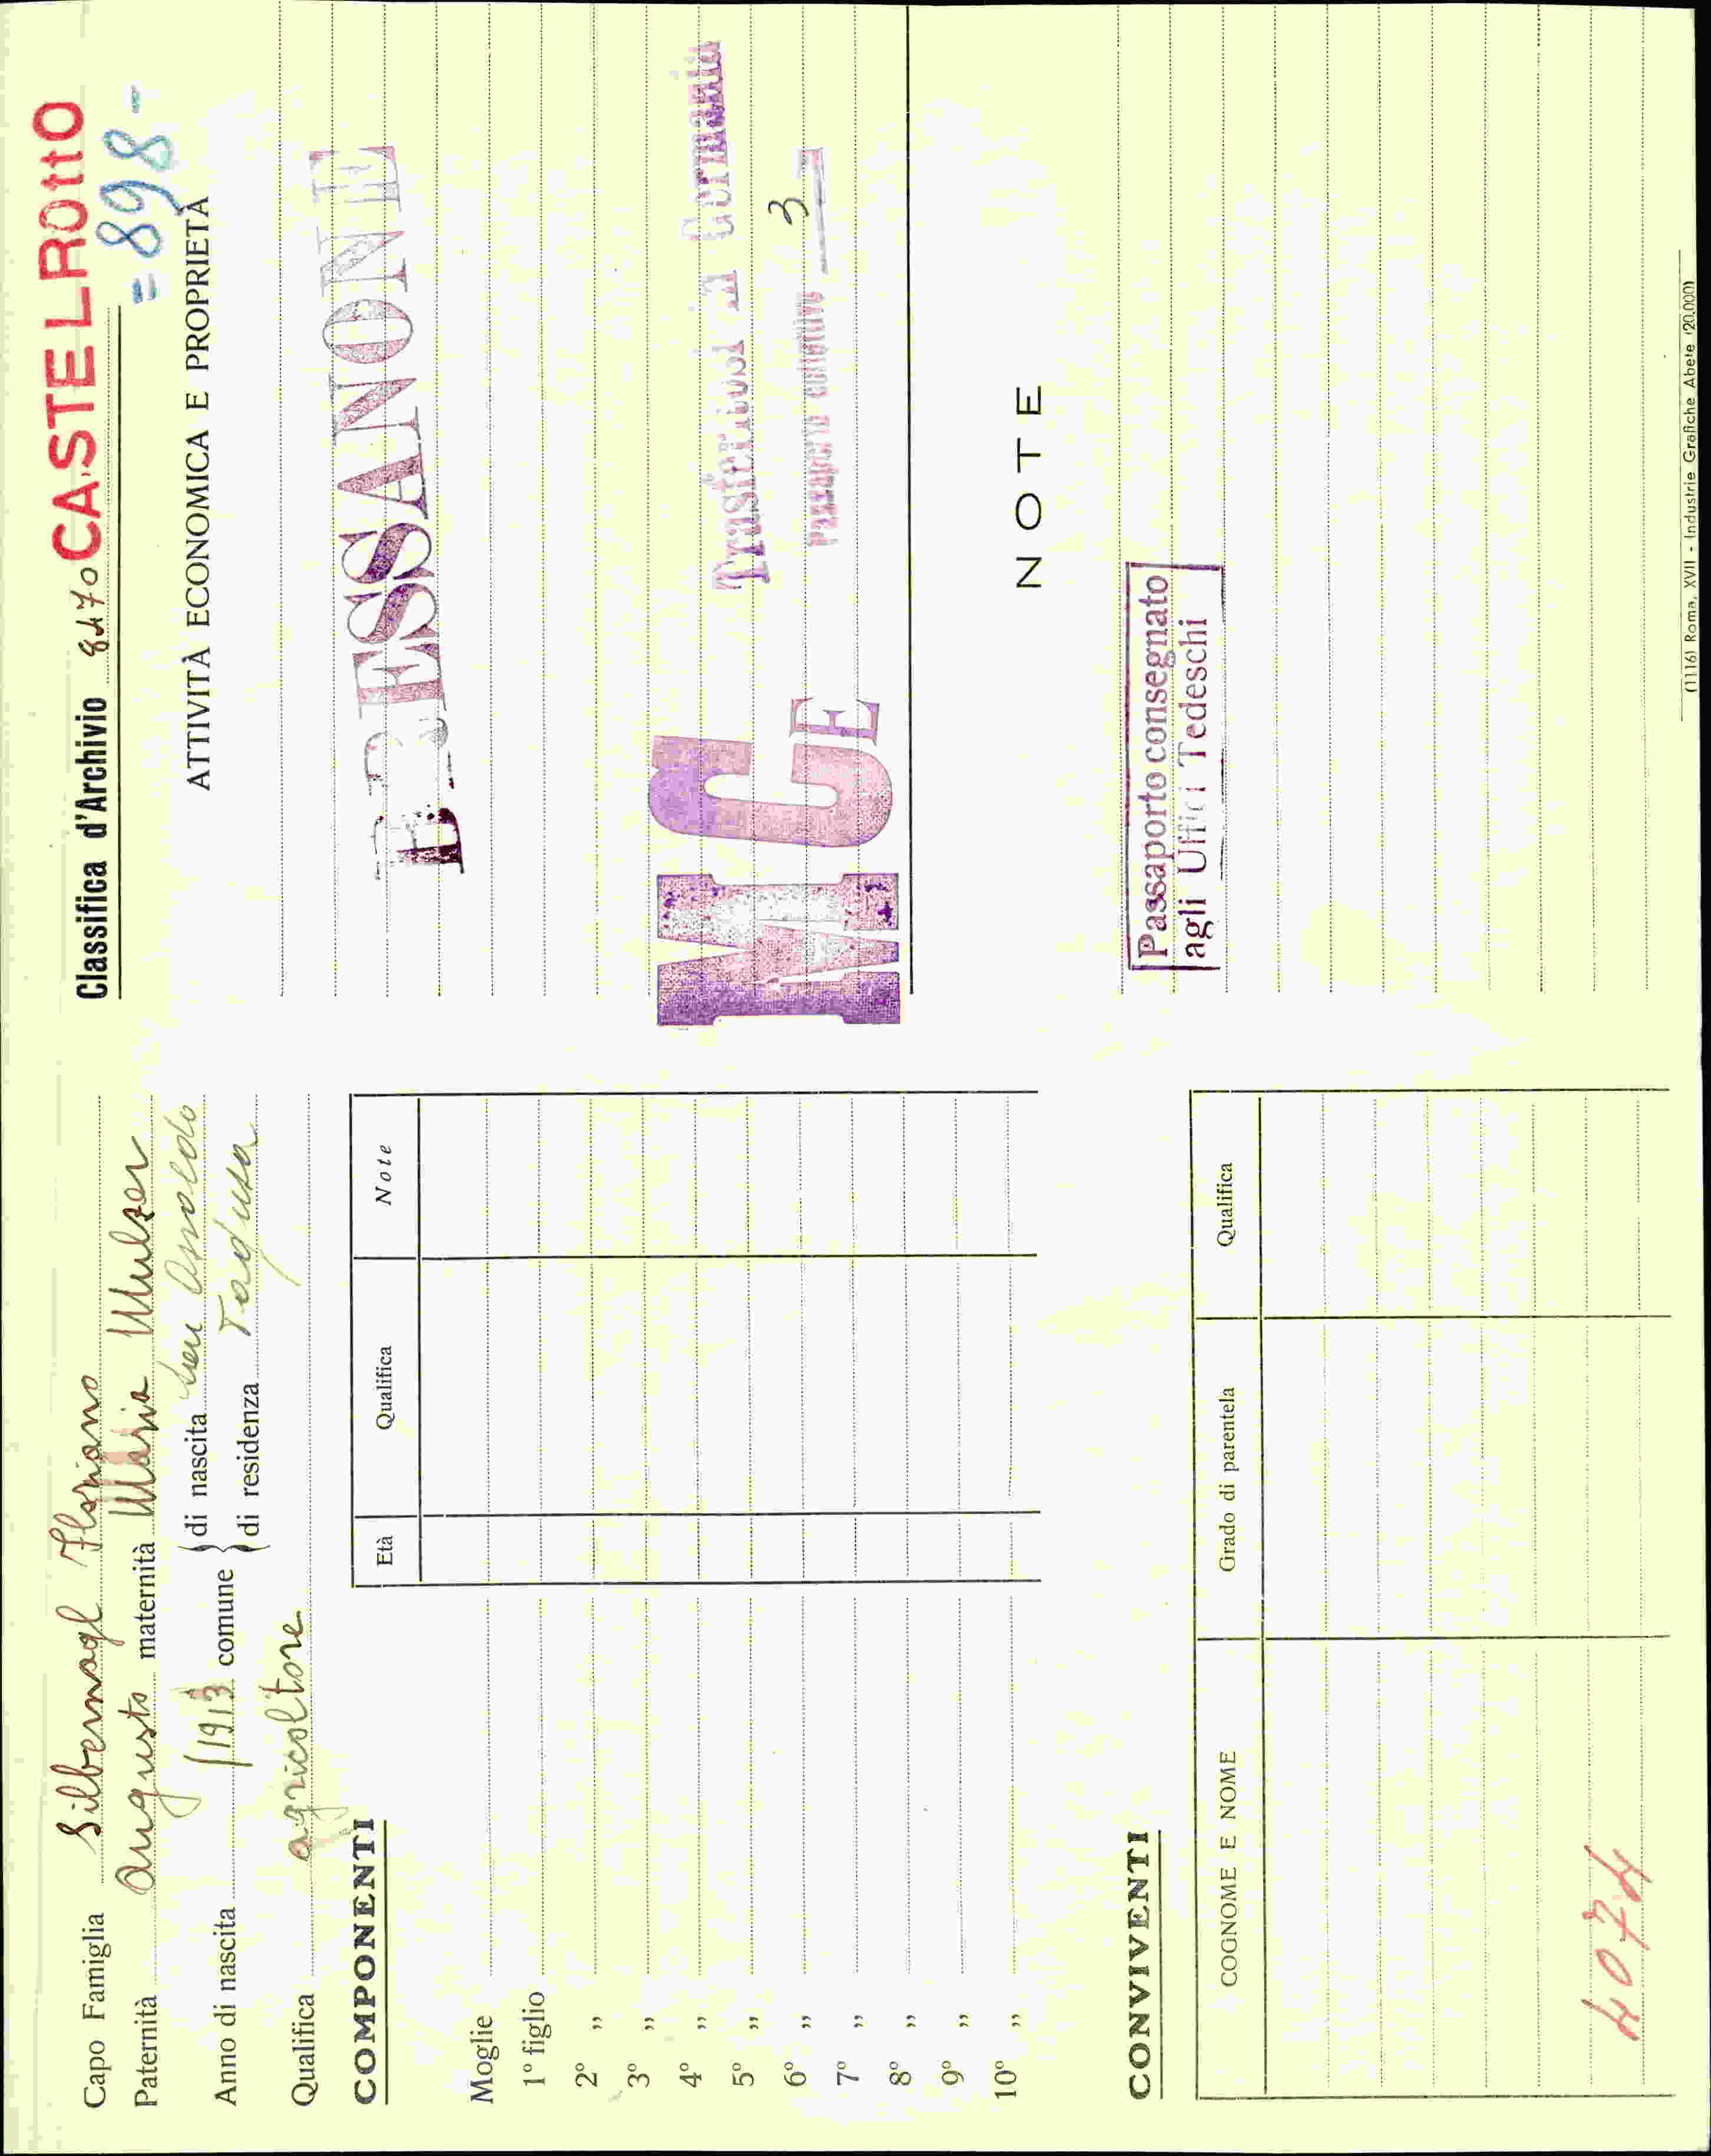 Capo Famiglia Silbernagl Floriano
Paternità Augusto maternità Maria Mulser
Anno di nascita 1913 comune di nascita
di residenza
Qualifica agricoltore
COMPONENTI
Età Qualifica Note
Moglie
1º figlio
2º ”
3º ”
4º ”
5º ”
6º ”
7º ”
8º ”
9º ”
10º ”
CONVIVENTI
COGNOME E NOME Grado di parentela Qualifica
4074
Classifica d'Archivio 8470 CASTELROttO
= 898 -
ATTIVITÀ ECONOMICA E PROPRIETÀ
BRESSANONE
Trasferitosi in Germania
passaporto collettivo 3
M GE
NOTE
Passaporto consegnato
agli Uffici Tedeschi
(1116) Roma, XVII - Industrie Grafiche Abete (20.000)